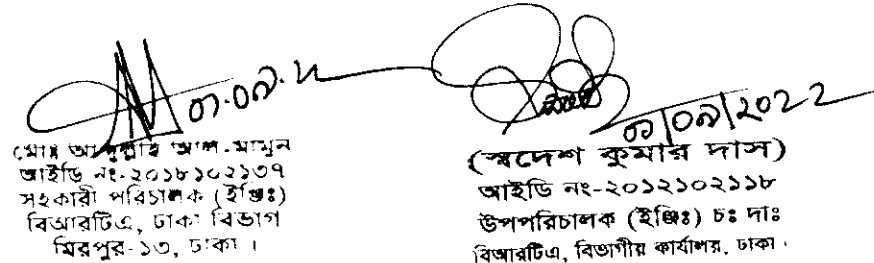 ০৭.০৯.২২
মোঃ আব্দুল্লাহ আল-মামুন
আইডি নং-২০১৮১০২১৩৭
সহকারী পরিচালক (ইঞ্জিঃ)
বিআরটিএ, ঢাকা বিভাগ
মিরপুর-১৩, ঢাকা ।
০৭/০৯/2022
(স্বদেশ কুমার দাস)
আইডি নং-২০১২১০২১১৮
উপপরিচালক (ইঞ্জিঃ) চঃ দাঃ
বিআরটিএ, বিভাগীয় কার্যালয়, ঢাকা ।